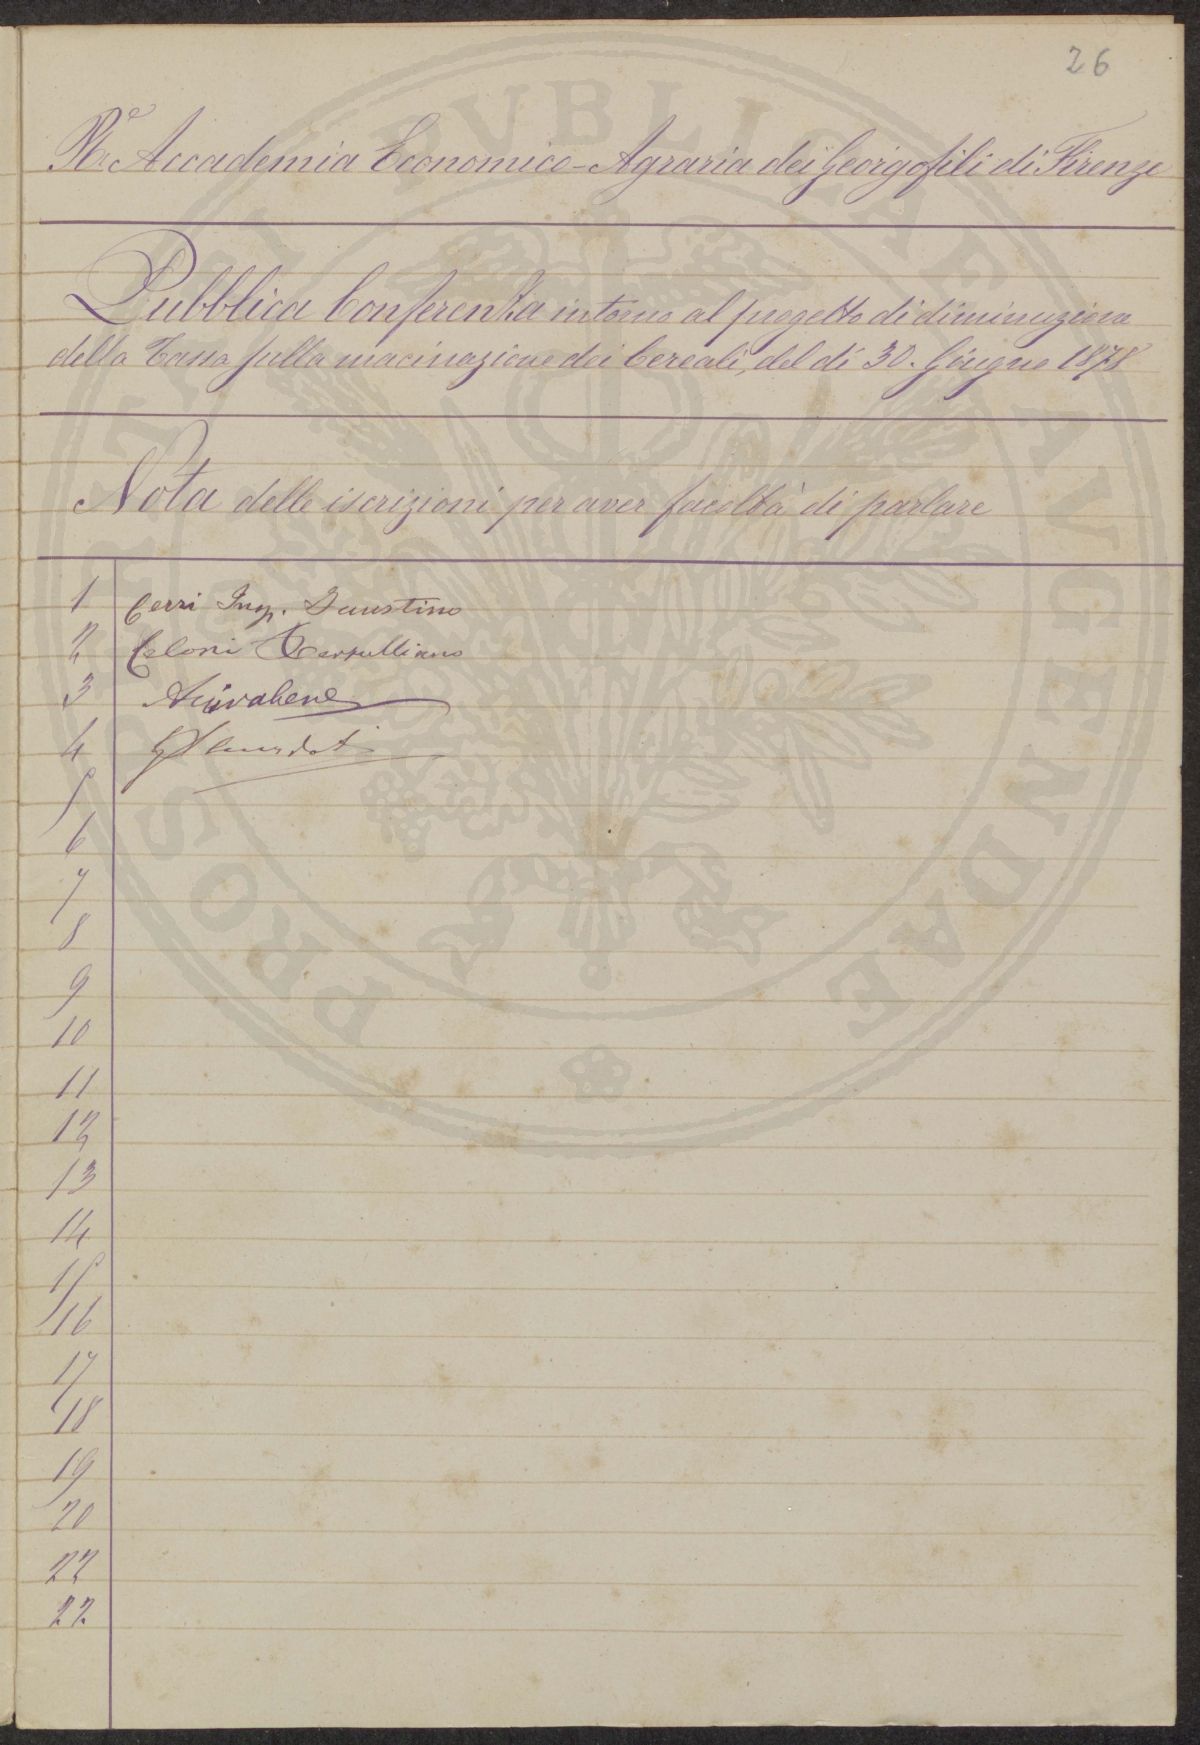 26
R.e Accademia Economico-Agraria dei Georgofili di Firenze
Pubblica Conferenza intorno al progetto di diminuzione
della Tassa sulla macinazione dei Cereali, del dì 30. Giugno 1878
Nota delle iscrizioni per aver facoltà di parlare
1 Cerri Ing. Faustino
2 Celoni Tertulliano
3 Arrivabene
4
5
6
7
8
9
10
11
12
13
14
15
16
17
18
19
20
22
22
PROSPERITATI PVBLICAE AVGENDAE